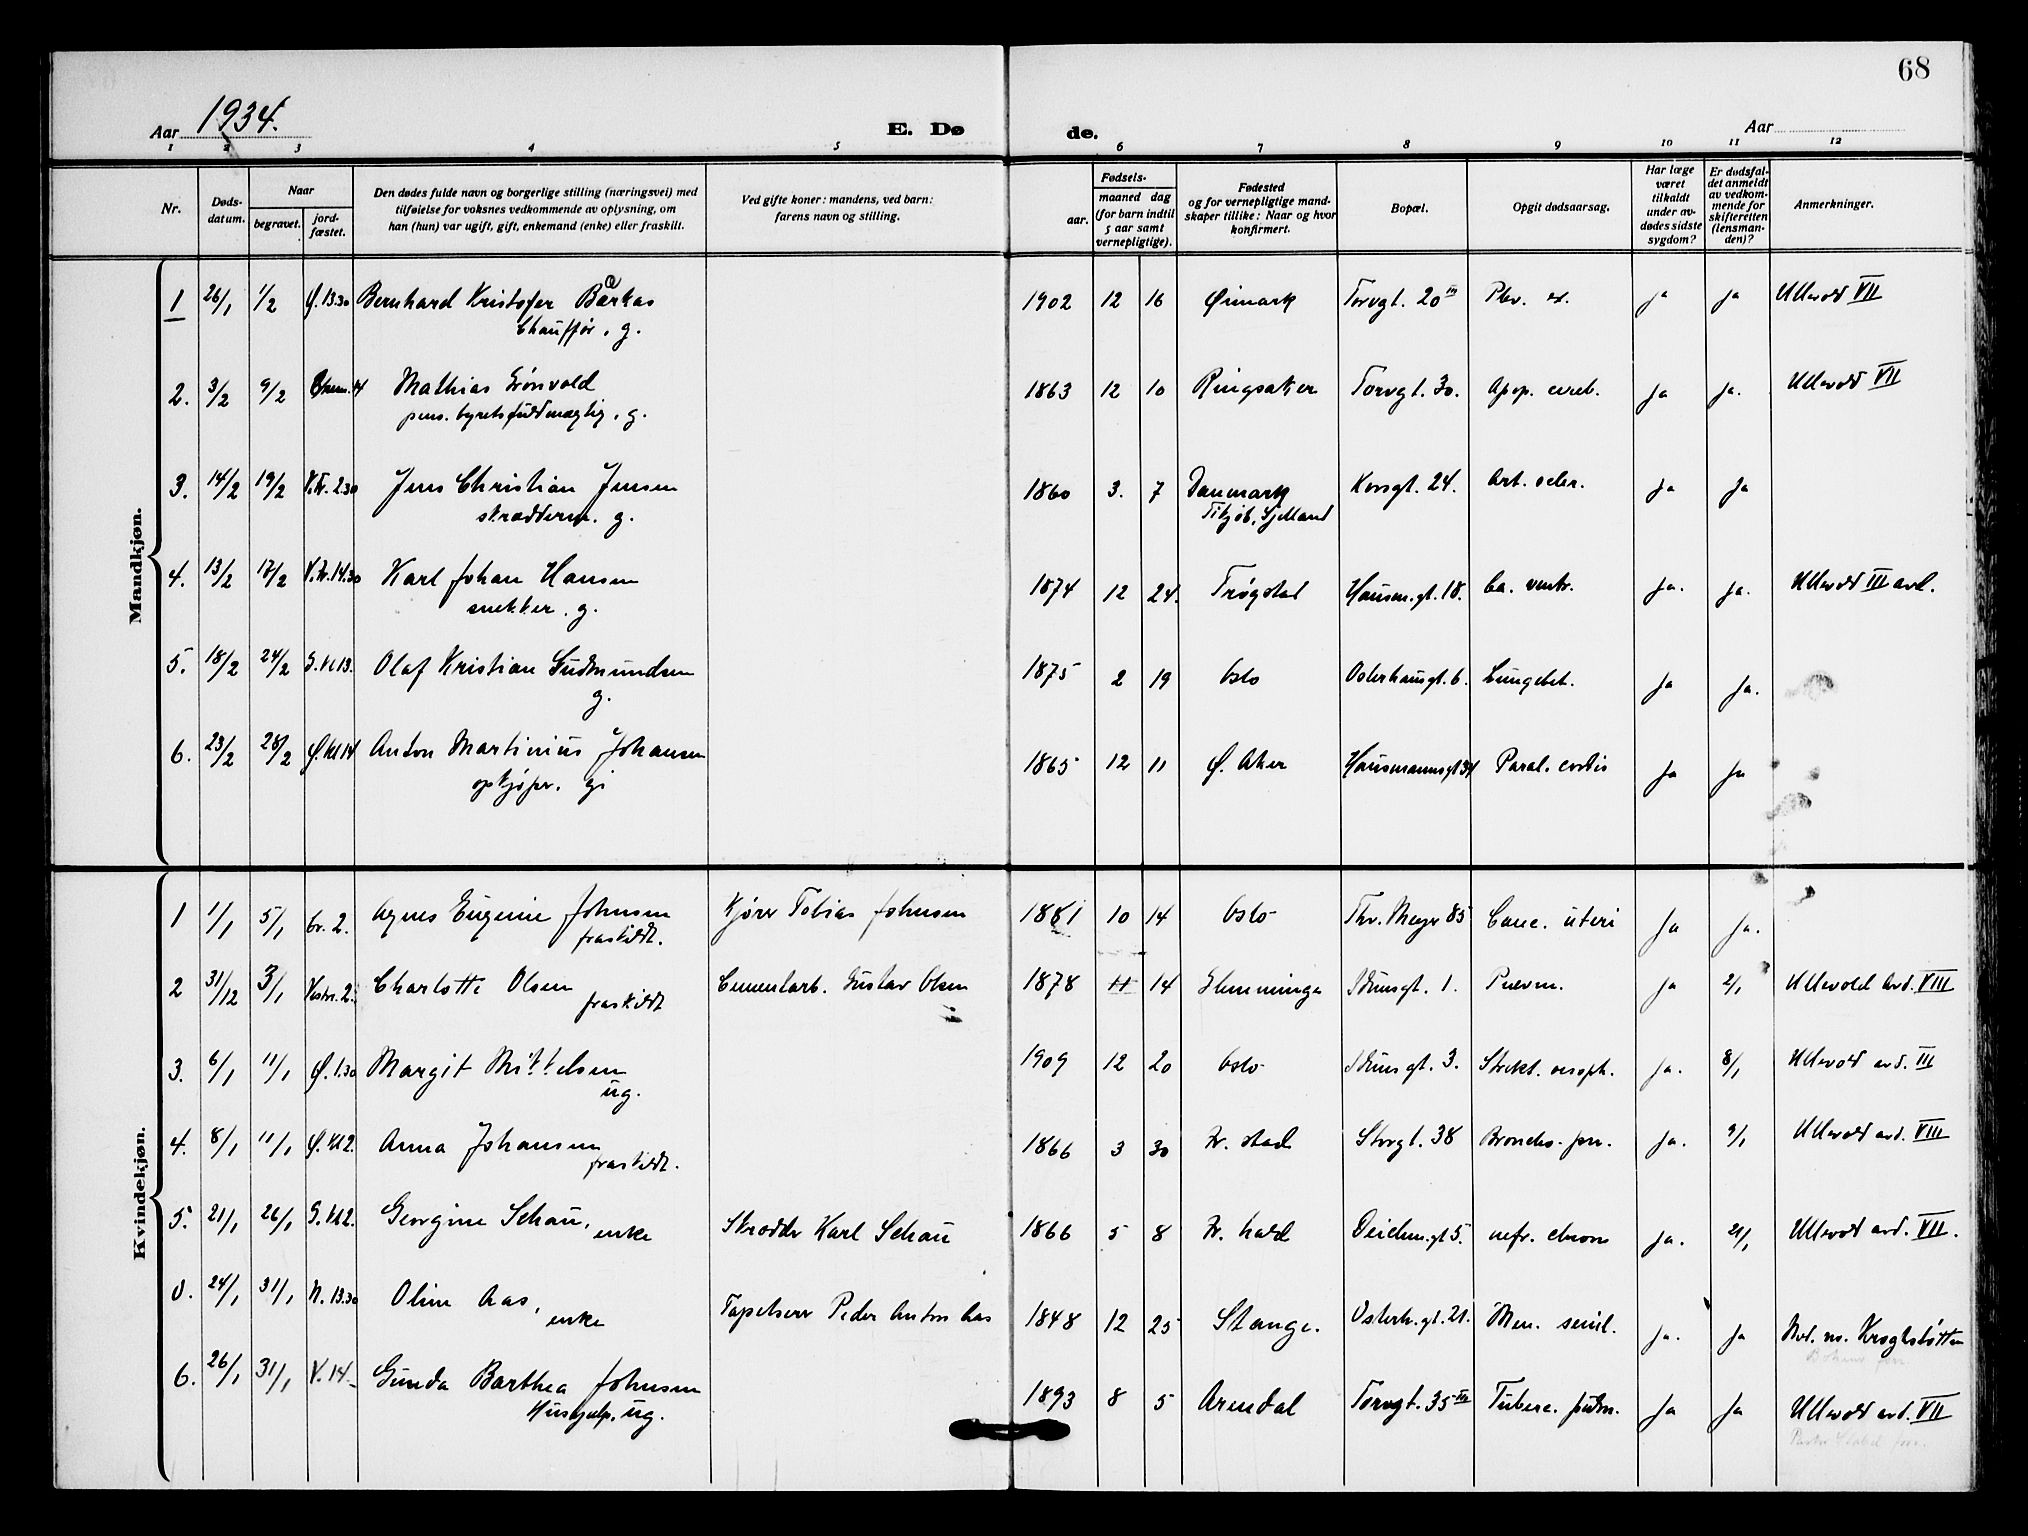 68
Aar 1934. E. Dø de. Aar
1 2 3 4 5 6 7 8 9 10 11 12
Nr.
Døds-
datum.
Naar
begravet.
jord-
fæstet.
Den dødes fulde navn og borgerlige stilling (næringsvei) med
tilføielse for voksnes vedkommende av oplysning, om
han (hun) var ugift, gift, enkemand (enke) eller fraskilt.
Ved gifte koner: mandens, ved barn:
farens navn og stilling.
Fødsels-
aar.
maaned dag
(for barn indtil
5 aar samt
vernepligtige).
Fødested
og for vernepligtige mand-
skaper tillike: Naar og hvor
konfirmert.
Bopæl.
Opgit dødsaarsag.
Har læge
været
tilkaldt
under av-
dødes sidste
sygdom?
Er dødsfal-
det anmeldt
av vedkom-
mende for
skifteretten
(lensman-
den)?
Anmerkninger.
Mandkjøn.
1 26/1 1/2 Ø. 13.30 Bernhard Kristofer 1902 12 16 Øimark Torvgt. 20 III ja ja Ullevold VII
Chauffør, g.
2. 3/2 9/2 Mathias Grönvold 1863 12 10 Ringsaker Torvgt. 30. Apop. cereb. ja ja. Ullevold VII
pens. byretsfuldmægtig, g.
3. 14/2 19/2 V.Kr. 2.30 Jens Christian Jensen 1860 3. 7 Danmark Korsgt. 24. Art. scler. ja ja
skrædderm. g. Tikjøb, Sjelland
4. 13/2 17/2 V.Kr. 14.30 Karl Johan Hansen 1874 12 24. Trøgstad Hausm.gt. 18. Ca. ventr. ja. ja. Ullevold III avd.
snekker. g.
5. 18/2 24/2 G. kl 13. Olaf Kristian Gudmundsen 1875 2 19 Oslo Osterhausgt. 6. Lungebet. ja ja.
g.
6. 23/2 28/2 Ø. kl 14 Anton Martinius Johansen 1865 12 11 Ø. Aker Hausmannsgt 34 Paral. cordis ja ja
opkjøper. gi
Kvindekjøn.
1 1/1 5/1 Gr. 2. Agnes Eugenie Johnsen Kjører Tobias Johnsen 1881 10 14 Oslo Thv. Meyr 85 Canc. uteri ja ja.
fraskildt.
2 31/12 3/1 Vestre. 2. Charlotte Olsen Cementarb. Gustav Olsen 1878 11 14 Glemminge Idunsgt. 1. Pnevm. ja 2/1 Ullevold Avd. VIII
fraskildt
3. 6/1 11/1 Ø. 1.30 Margit Mikkelsen 1909 12 20 Oslo Idunsgt. 3. Strikt. oesoph. ja. 8/1 Ullevold avd. III
ug.
4. 8/1 11/1 Ø. kl 2. Anna Johansen 1866 3 30 Kr. stad Storgt. 38 Broncho-pn. ja. 9/1 Ullevold avd. VIII
fraskildt.
5. 21/1 26/1 G. kl 2. Georgine Schau, enke Skrædder Karl Schau 1866 5 8 Fr. hald Deichm.gt 5. nefr. chron ja. 21/1 Ullevold avd. VII.
0. 24/1 31/1 N. 13.30 Oline Aas, enke Tapetserer Peder Anton Aas 1848 12 25 Stange. Osterh.gt. 21. Men. senil. ja. ja
6. 26/1 31/1 V. 14 Gunda Barthea Johnsen 1893 8 5 Arendal Torvgt. 35 III Tuberc. pulm. ja ja Ullevold avd. VII
Hushjelp, ug.